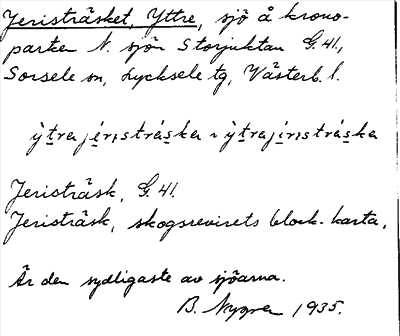 Jeristräsket, Yttre, sjö å krono-
parken N. sjön Storjuktan G. 41,
Sorsele sn, Lycksele tg, Västerb. l.
ỳtrajéristráska ~ ỳtrajíristráska
Jeristräsk, G. 41.
Jeristräsk, skogsrevirets block-karta.
Är den sydligaste av sjöarna.
B. Nygren 1935.